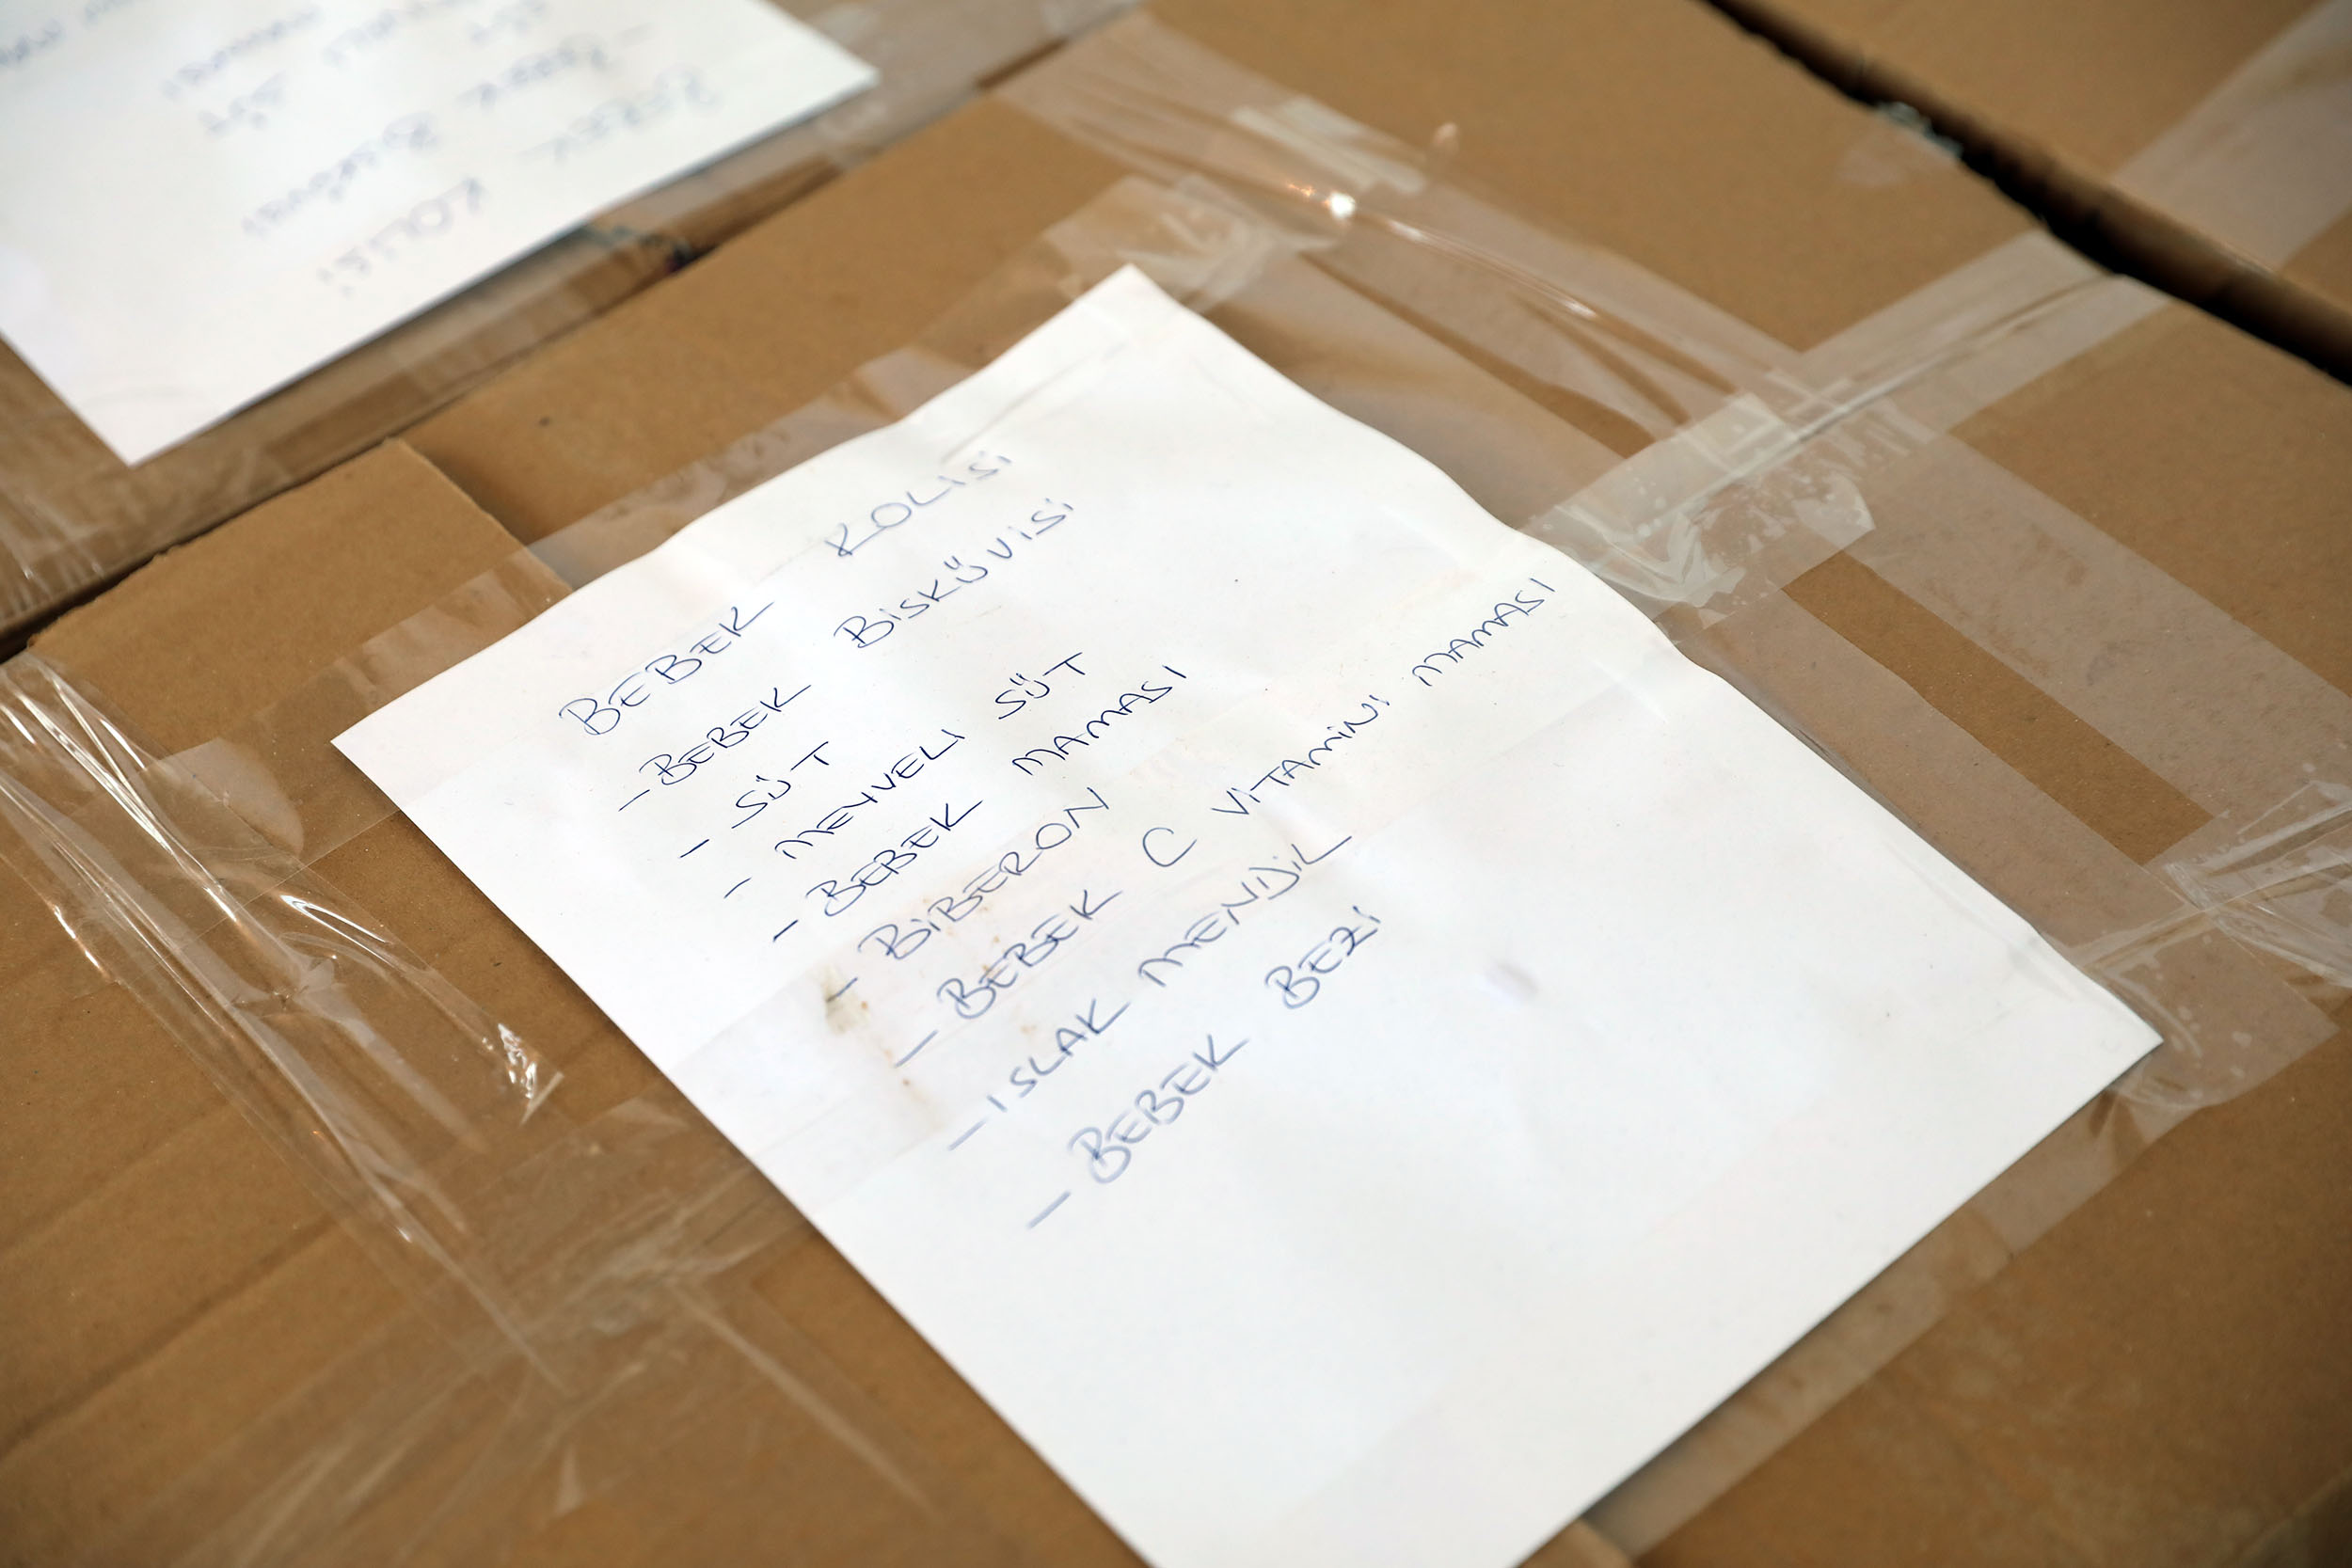 BEBEK KOLİSİ
-BEBEK BİSKÜVİSİ
- SÜT
- MEYVELI SÜT
- BEBEK MAMASI
- BİBERON
- BEBEK C VİTAMİNİ MAMASI
- ISLAK MENDİL
- BEBEK BEZİ
BEBEK KOLİSİ
BEBEK BİSKÜVİSİ
SÜT